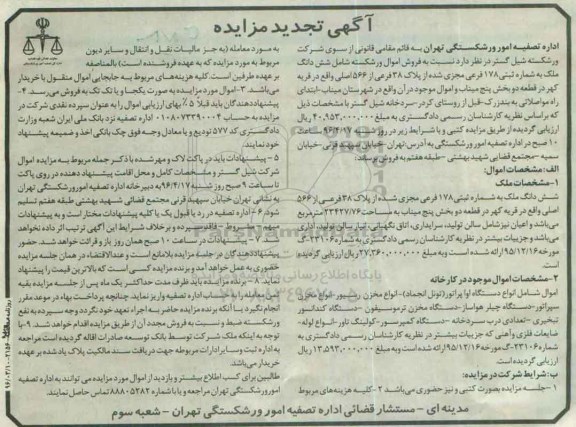 آگهی تجدید مزایده
اداره تصفیه امور ورشکستگی تهران به قائم مقامی قانونی از سوی شرکت
ورشکسته شیل گستر در نظر دارد نسبت به فروش اموال ورشکسته شامل شش دانگ
ملک به شماره ثبتی ۱۷۸ فرعی مجزی شده از پلاک ۳۸ فرعی از ۵۶۶ اصلی واقع در قریه
کهر در قطعه دو بخش پنج میناب و اموال موجود در آن واقع در شهرستان میناب-ابتدای
راه مواصلاتی به بندزرک-قبل از روستای کردر-سردخانه شیل گستر با مشخصات ذیل
که براساس نظریه کارشناسان رسمی دادگستری به مبلغ ۴۰,۹۵۳,۰۰۰,۰۰۰ ریال
ارزیابی گردیده از طریق مزایده کتبی و با شرایط زیر در روز شنبه ۹۶/۴/۱۷ ساعت
۱۰ صبح در اداره تصفیه امور ورشکستگی به آدرس تهران-خیابان سپهبد قرنی-خیابان
سمیه-مجتمع قضایی شهید بهشتی-طبقه هفتم به فروش برسد:
الف: مشخصات اموال:
۱-مشخصات ملک
شش دانگ ملک به شماره ثبتی ۱۷۸ فرعی مجزی شده از پلاک ۳۸ فرعی از ۵۶۶
اصلی واقع در قریه کهر در قطعه دو بخش پنج میناب به مساحت ۲۳۴۲۷/۷۶ مترمربع
می‌باشد و اعیان نیز شامل سالن تولید، سرایداری، اتاق نگهبانی، انبار، سالن تولید، اداری
می‌باشد و جزییات بیشتر در نظریه کارشناسان رسمی دادگستری به شماره ۲۳۱۰۶-گ
مورخه ۹۵/۱۲/۱۶ ارائه شده است و به مبلغ ۲۷,۳۶۰,۰۰۰,۰۰۰ ریال ارزیابی گردیده
است.
۲-مشخصات اموال موجود در کارخانه
اموال شامل انواع دستگاه اوا پراتور(تونل انجماد)-انواع مخزن رسیور-انواع مخزن
سپراتور-دستگاه چیلر هواساز-دستگاه مخزن ترموسیفون-دستگاه کندانسور
تبخیری-تعدادی درب سردخانه-دستگاه کمپرسور-کولینگ تاور-انواع لوله-
ضایعات فلزی و آهنی که جزییات بیشتر در نظریه کارشناسان رسمی دادگستری به
شماره ۲۳۱۰۶-گ مورخه ۹۵/۱۲/۱۶ ارائه شده است و به مبلغ ۱۳,۵۹۳,۰۰۰,۰۰۰ ریال
ارزیابی گردیده است.
ب: شرایط شرکت در مزایده:
۱-جلسه مزایده بصورت کتبی و نیز حضوری می‌باشد ۲-کلیه هزینه‌های مربوط
به مورد معامله (به جز مالیات نقل و انتقال و سایر دیون
مربوط به مورد مزایده که به عهده فروشنده است) بالمناصفه
بر عهده طرفین است. کلیه هزینه‌های مربوط به جابجایی اموال منقول با خریدار
می‌باشد. ۳-اموال مورد مزایده به صورت یکجا و یا تک تک به فروش می‌رسد. ۴-
پیشنهاددهندگان باید قبلا ۵٪ بهای ارزیابی اموال را به عنوان سپرده نقدی شرکت در
مزایده به حساب ۰۱۰۸۰۷۳۳۹۰۰۰۴ اداره تصفیه نزد بانک ملی ایران شعبه وزارت
دادگستری کد ۵۷۷ تودیع و یا معادل وجه فوق چک بانکی اخذ و ضمیمه پیشنهاد
خود نمایند.
۵-پیشنهادات باید در پاکت لاک و مهر شده با ذکر جمله مربوط به مزایده اموال
شرکت شیل گستر و مشخصات کامل و محل اقامت پیشنهاد دهنده در روی پاکت
تا ساعت ۹ صبح روز شنبه ۹۶/۴/۱۷ به دبیرخانه اداره تصفیه امور ورشکستگی تهران
به نشانی تهران خیابان سپهبد قرنی مجتمع قضائی شهید بهشتی طبقه هفتم تسلیم
شود. ۶-اداره تصفیه در رد یا قبول یک یا کلیه پیشنهادات مختار است و به پیشنهادات
مبهم، مشروط، فاقد سپرده و بر خلاف شرایط این آگهی ترتیب اثر داده نخواهد
شد. ۷-پیشنهادات در ساعت ۱۰ صبح همان روز باز و قرائت خواهد شد. حضور
پیشنهاددهندگان در جلسه مزایده بلامانع است و عنداالاقتضاء در همان جلسه مزایده
حضوری به عمل خواهد آمد و برنده مزایده کسی است که بالاترین قیمت را پیشنهاد
نماید. ۸-برنده مزایده باید ظرف مدت حداکثر یک ماه پس از جلسه مزایده بقیه
ثمن معامله را به حساب اداره تصفیه واریز نماید. چنانچه پرداخت بهاء در موعد مقرر
انجام نگیرد یا آنکه برنده مزایده حاضر به اجراء تعهد خود نگردد وجه سپرده به نفع
ورشکسته ضبط و نسبت به فروش مجدد آن از طریق مزایده اقدام خواهد شد. ۹-با
توجه به اینکه ملک شرکت توسط بانک توسعه صادرات اقاله گردیده است مراجعه
به اداره ثبت و سایر ادارات مربوطه جهت دریافت سند مالکیت پلاک یاد شده بر عهده
خریدار می‌باشد.
طالبین برای کسب اطلاع بیشتر و بازدید از اموال مورد مزایده می توانند به اداره تصفیه
امور ورشکستگی تهران مراجعه و یا با شماره ۸۸۸۰۵۲۸۲ تماس حاصل نمایند.
مدینه ای - مستشار قضائی اداره تصفیه امور ورشکستگی تهران - شعبه سوم